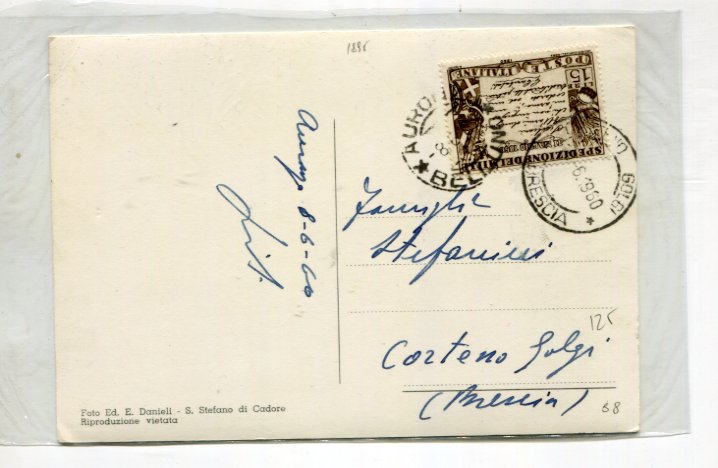 1895
Auronzo 8-6-60
Famiglia
Stefanini
Corteno Golgi
(Brescia)
125
58
Foto Ed. E. Danieli - S. Stefano di Cadore
Riproduzione vietata
POSTE ITALIANE
1960
LIRE 15
SPEDIZIONE DEI MILLE
AURON
BELLUNO
GOLGI
BRESCIA
6.1960